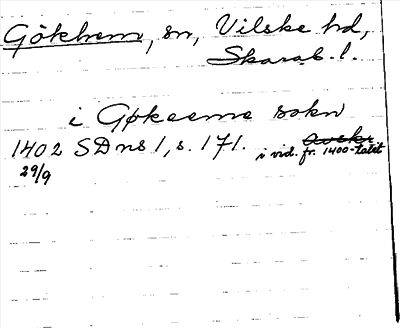 Gökhem, sn, Vilske hd,
Skarab. l.
i Gøkeeme sokn
1402 SDns 1, s. 171. i vid. fr. 1400-talet
29/9